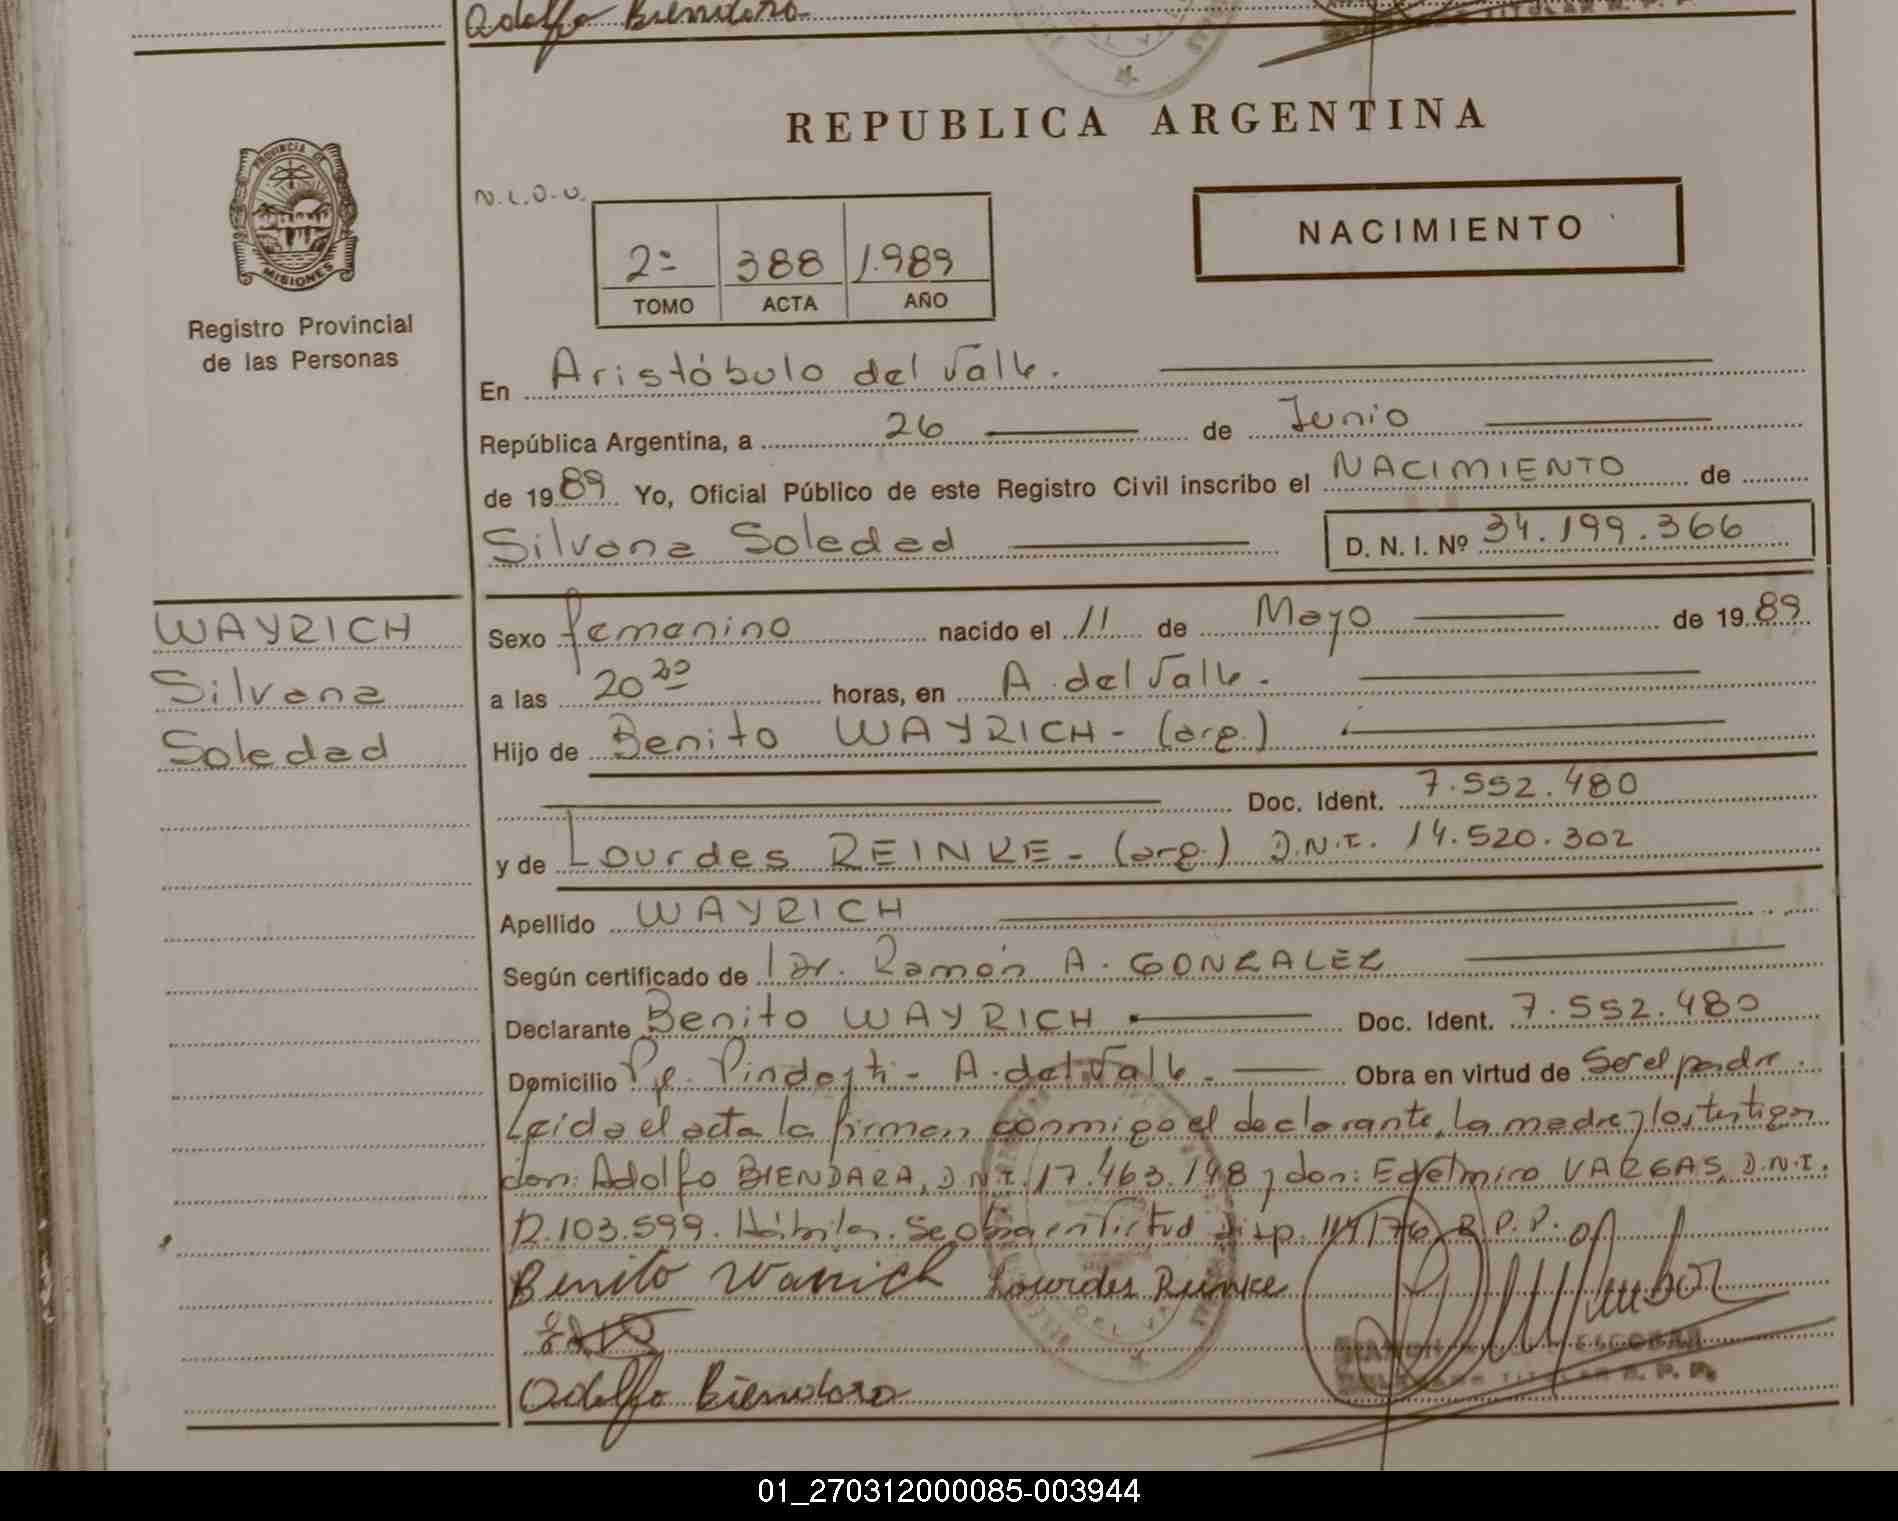 Adolfo Biendara
REPUBLICA ARGENTINA
PROVINCIA DE
MISIONES
Registro Provincial
de las Personas
N.L.O.U.
2º 388 1.989
TOMO ACTA AÑO
NACIMIENTO
En Aristóbulo del Valle.
República Argentina, a 26 de Junio
de 1989 Yo, Oficial Público de este Registro Civil inscribo el NACIMIENTO de
Silvana Soledad D. N. I. Nº 34.199.366
WAYRICH
Silvana
Soledad
Sexo femenino nacido el 11 de Mayo de 1989
a las 20 30 horas, en A. del Valle.
Hijo de Benito WAYRICH - (arg.)
Doc. Ident. 7.552.480
y de Lourdes REINKE - (arg.) D.N.I. 14.520.302
Apellido WAYRICH
Según certificado de Dr. Ramón A. GONZALEZ
Declarante Benito WAYRICH Doc. Ident. 7.552.480
Domicilio Pje. Pindaytí - A. del Valle. Obra en virtud de Ser el padre.
Leída el acta la firman conmigo el declarante, la madre y los testigos
don: Adolfo BIENDARA, D.N.I. 17.463.148 y don: Edelmiro VARGAS, D.N.I.
12.103.599. Hábiles. Se obra en virtud Disp. 114/76 R.P.P.
Benito Wairich Lourdes Reinke
ESCOBAR
TITULAR R. P. P.
Adolfo Biendara
01_270312000085-003944